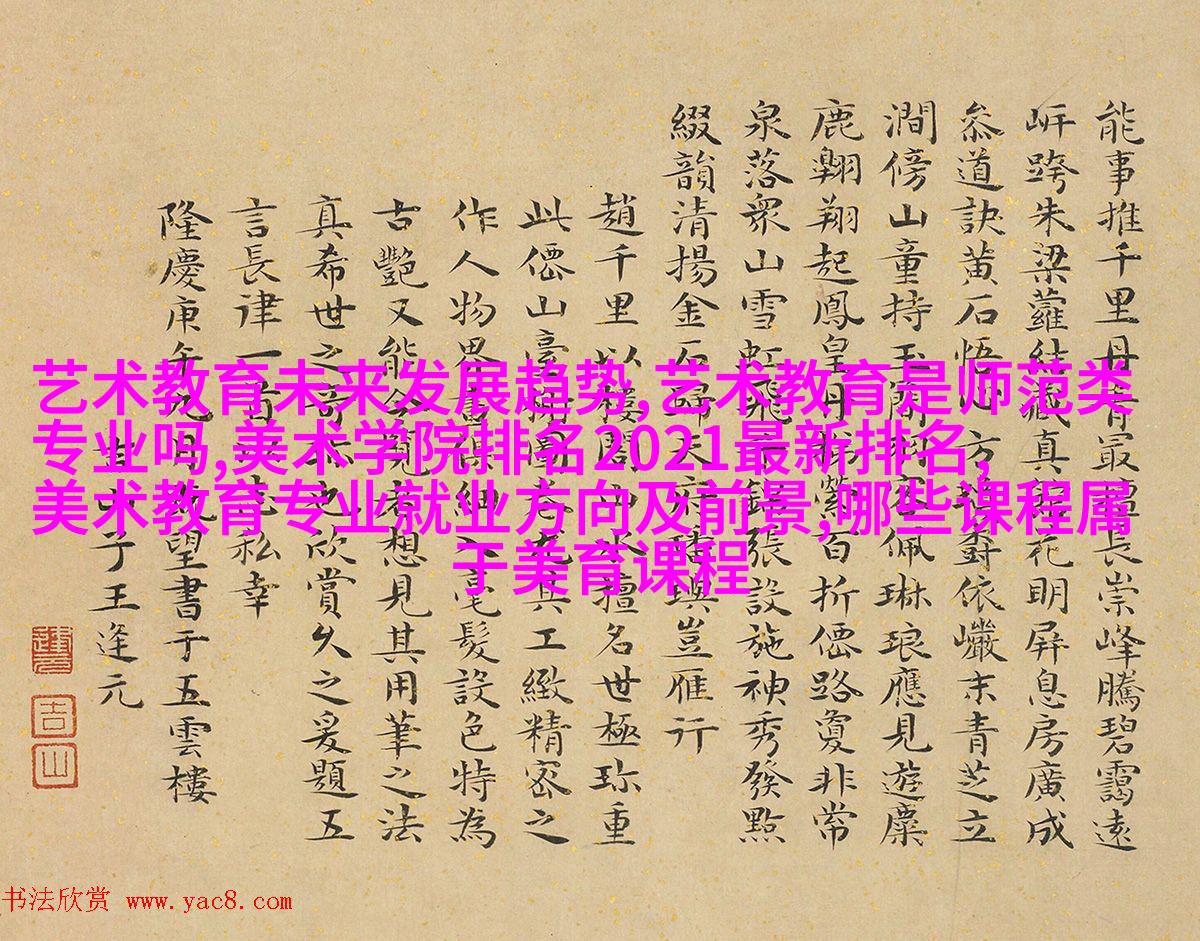 能事推千里丹青最擅長崇峰騰碧靄遠
岍跨朱梁蘿結藏真花明屏息房廣成
叅道訣黃石悟心方欝依巘末青芝立
澗傍山童持玉佩琳琅應見遊麋
鹿翱翔起鳳皇丹縈百折僊路敻非常
泉落衆山雪虹飛張設施神秀發點
綴韻清揚金石歸天府瑛豈雁行
趙千里以樓閣山水擅名世極珎重
此僊山臺其工緻精密之
作人物界畫細入毫髮設色特為
古艷又能想見其用筆之法
真希世之奇珎也欣賞久之爰題五
言長律一首私幸
隆慶庚午望書于五雲樓
子王逢元
艺术教育未来发展趋势,艺术教育是师范类
专业吗,美术学院排名2021最新排名,
美术教育专业就业方向及前景,哪些课程属
于美育课程
书法欣赏 www.yac8.com